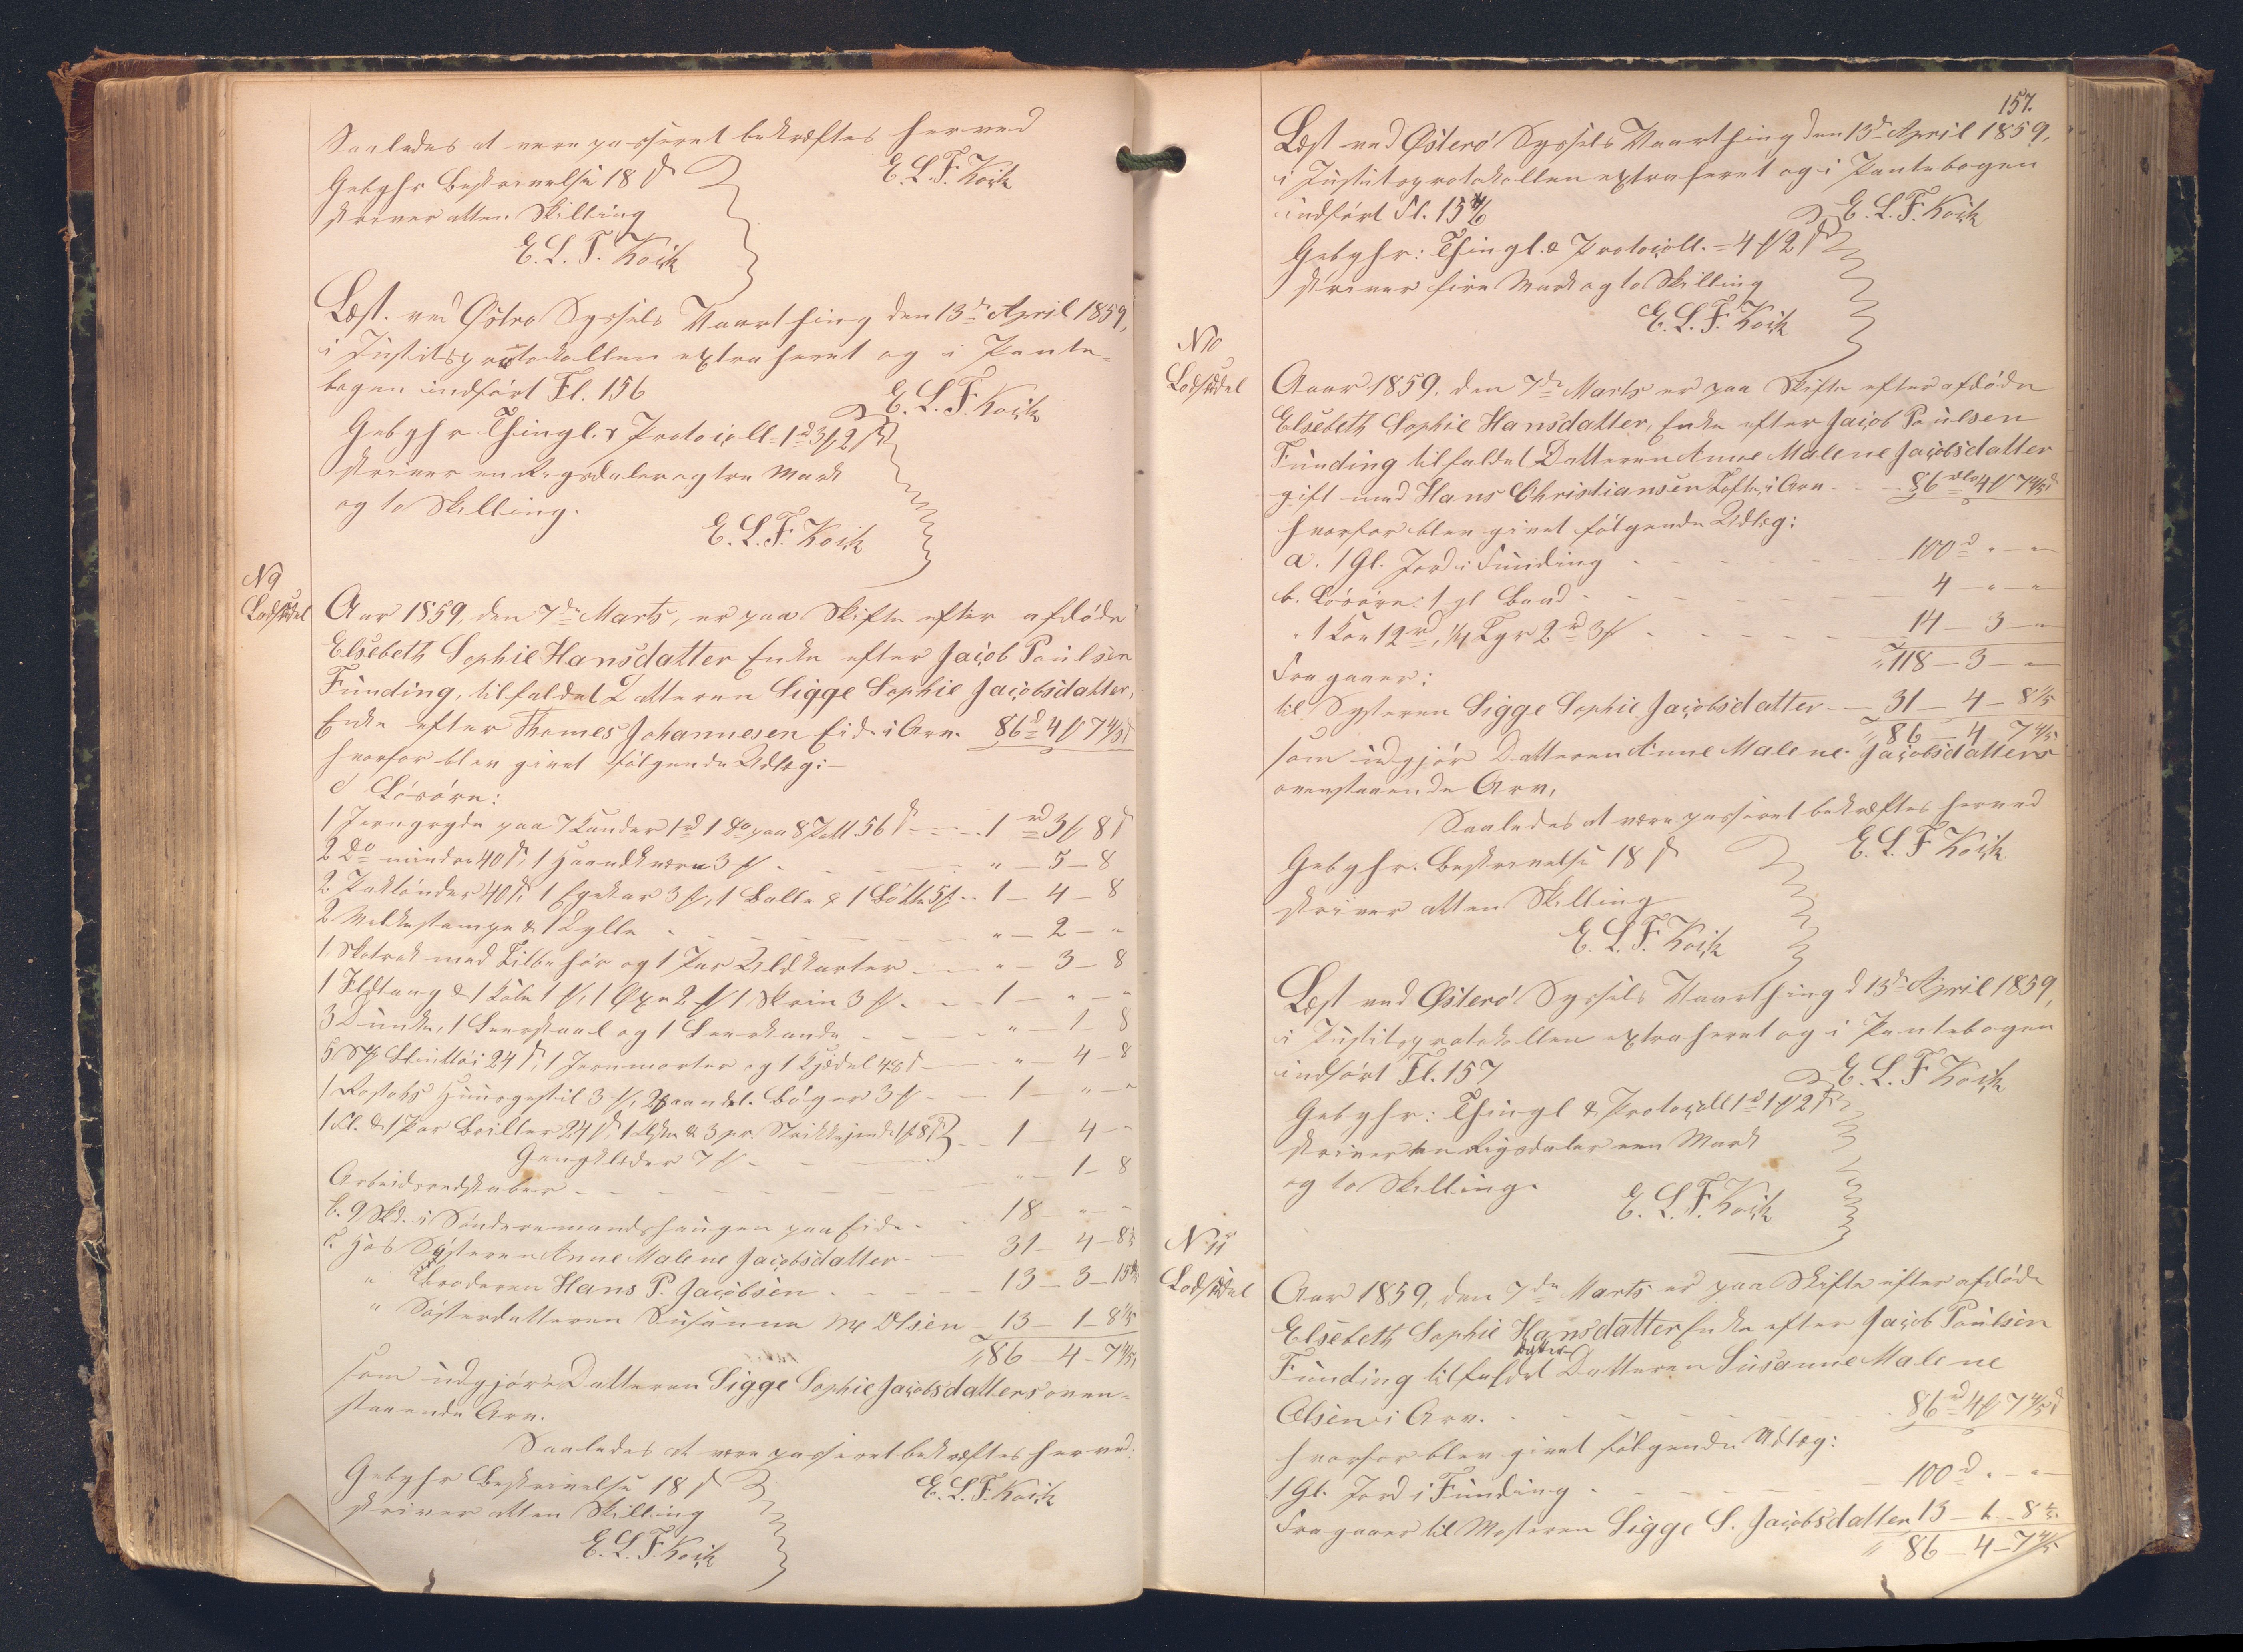 Saaledes at være passeret bekræftes herved
E. L. F. Koch
Gebyhr Beskrivelse 18 ß
skriver atten Skilling
E. L. F. Koch
Læst ved Østrø Syssels Vaarthing den 13de April 1859,
i Justitsprotokollen extraheret og i Pante-
bogen indført Fl. 156
E. L. F. Koch
Gebyhr Thingl. & Protocoll. 1 d 3 ƒ 2 ß
skriver en Rigsdaler og tre Mark
og to Skilling.
E. L. F. Koch
N 9
Lodseddel
Aar 1859, den 7de Marts, er paa Skifte efter afdøde
Elsebeth Sophie Hansdatter Enke efter Jacob Poulsen
Funding, tilfaldet Datteren Sigge Sophie Jacobsdatter,
Enke efter Thomes Johannesen Eide i Arv. 86 d 4 ƒ 7 4/5 ß
hvorfor blev givet følgende Udlæg:-
Løsøre:
1 Jerngryde paa 7 Kander 1 d 1 Do paa 8 Pott 56 ß - 1 rd 3 ƒ 8 ß
2 Do mindre 40 ß, 1 Haandkværn 3 ƒ - " - 5 - 8
2 40 ß, 1 Egekar 3 ƒ, 1 Balle & 1 Bøtte 5 ƒ - 1 - 4 - 8
2 Melkestampe & 1 Bylle - " - 2 - "
1 Skotrok med Tilbehør og 1 Par Uldkarter - " - 3 - 8
1 Ildtang & 1 1 ƒ, 1 Øxe 2 ƒ 1 Skrin 3 ƒ - 1 - " - "
3 Dunke, 1 Leerskaal og 1 Leerkande - " - 1 - 8
5 St. Steentøi 24 ß, 1 Jernmorter og 1 Kjedel 48 ß - " - 4 - 8
1 Huuspostil 3 ƒ, 2 Bøger 3 ƒ - 1 - " - "
1 Par Briller 24 ß, 1 & 3 pr. 1 ƒ 8 ß - 1 - 4 - "
Gangklæder 7 ƒ
Arbeidsredskaber - " - 1 - 8
b. 9 Skd. i Sønderemandshaugen paa Eide - 18 - " - "
c. Hos Søsteren Anne Malene Jacobsdatter - 31 - 4 - 8 1/5
" Broderen Hans P. Jacobsen - 13 - 3 - 15
" Søsterdatteren Susanna M. Olsen - 13 - 1 - 8 1/5
86 - 4 - 7 4/5
som udgjøre Datteren Sigge Sophie Jacobsdatters oven-
staaende Arv.
Saaledes at være passeret bekræftes herved.
E. L. F. Koch
Gebyhr Beskrivelse 18 ß
skriver atten Skilling
E. L. F. Koch
157.
Læst ved Østerø Syssels Vaarthing den 13de April 1859,
i Justitsprotokollen extraheret og i Pantebogen
indført Fl. 156
E. L. F. Koch
Gebyhr: Thingl. & Protocoll. = 4 ƒ 2 ß
skriver fire Mark og to Skilling
E. L. F. Koch
N 10
Lodseddel
Aaar 1859. den 7de Marts er paa Skifte efter afdøde
Elsebeth Sophie Hansdatter, Enke efter Jacob Poulsen
Funding tilfaldet Datteren Anne Malene Jacobsdatter
gift med Hans Christiansen Tofte, i Arv - 86 rdlr 4 ƒ 7 4/5 ß
hvorfor blev givet følgende Udlæg:
a. 1 Gl. Jord i Funding - 100 d " - "
b. Løsøre: 1 gl Baad - 4 - " - "
" 1 Koe 12 rd, 1/4 Tyr 2 rd 3 ƒ - 14 - 3 - "
118 - 3 - "
Fragaaer:
til Systeren Sigge Sophie Jacobsdatter - 31 - 4 - 8 1/5
86 - 4 - 7 4/5
som udgjør Datteren Anne Malene Jacobsdatters
ovenstaaende Arv,
Saaledes at være passeret bekræftes herved
E. L. F. Koch
Gebyhr. Beskrivelse 18 ß
skriver atten Skilling
E. L. F. Koch
Læst ved Østerø Syssels Vaarthing d 13de April 1859,
i Justitsprotokollen extraheret og i Pantebogen
indført Fl. 157
E. L. F. Koch
Gebyhr: Thingl & Protocoll 1 d 1 ƒ 2 ß
skriver en Rigsdaler een Mark
og to Skilling.
E. L. F. Koch
N 11
Lodseddel
Aar 1859, den 7de Marts er paa Skifte efter afdøde
Elsebeth Sophie Hansdatter Enke efter Jacob Poulsen
Funding tilfaldet Datters Datteren Susanne Malene
Olsen i Arv. - 86 rd 4 ƒ 7 4/5 ß
hvorfor blev givet følgende Udlæg:
1 Gl. Jord i Funding - 100 d " - "
Fragaaer til Mosteren Sigge S. Jacobsdatter 13 - 1 - 8 1/5
86 - 4 - 7 4/5